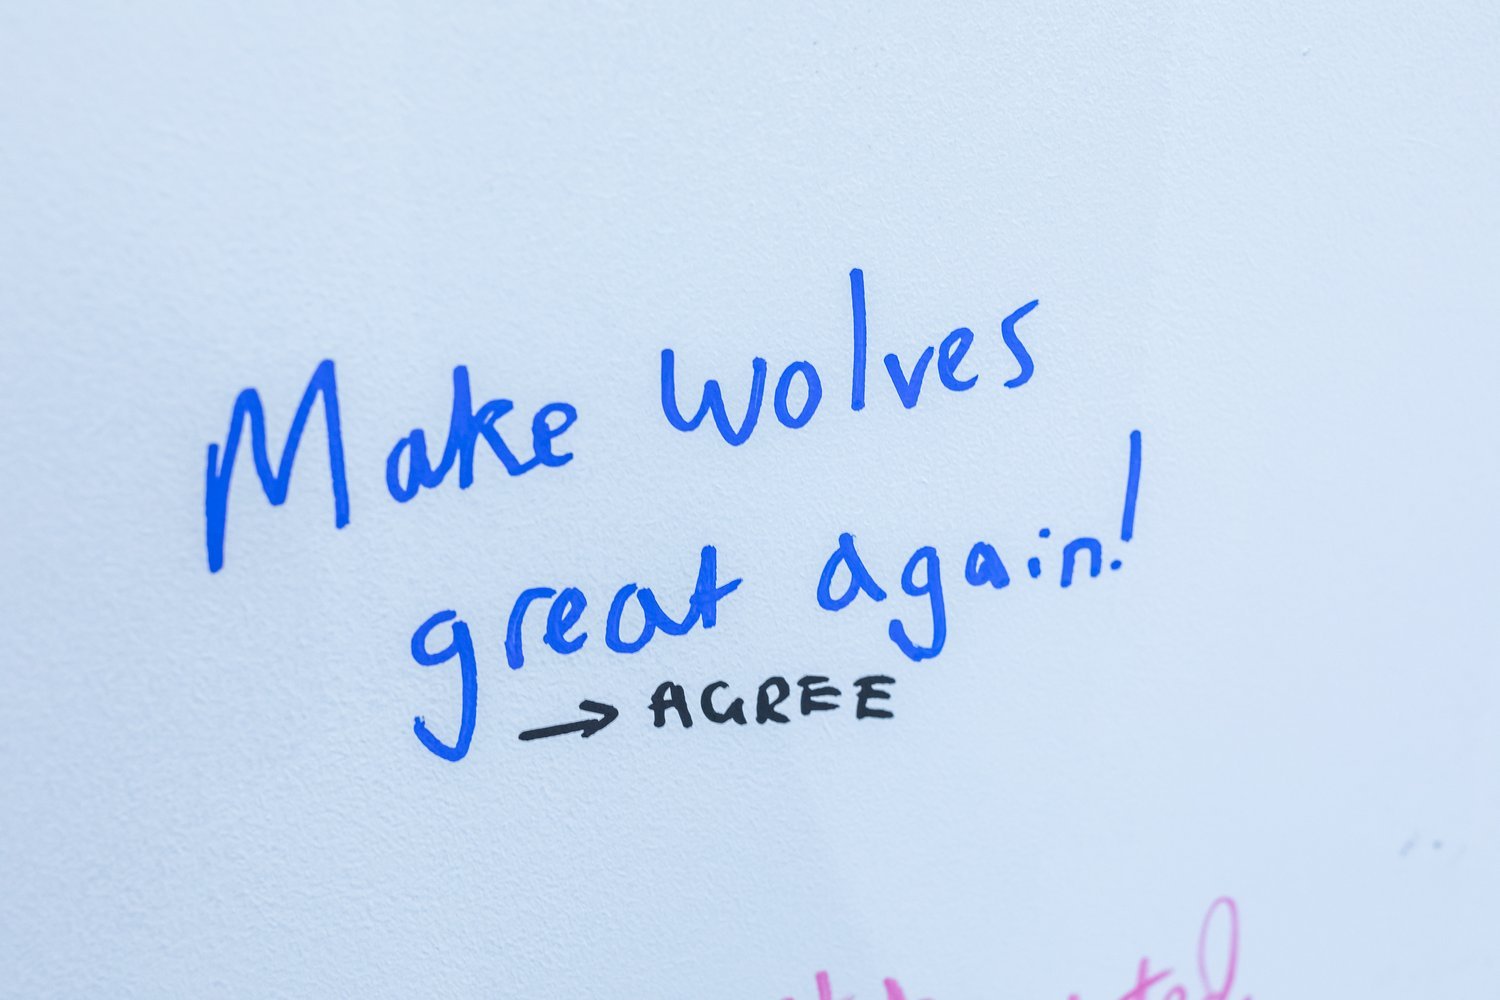 Make wolves
great again!
→ AGREE